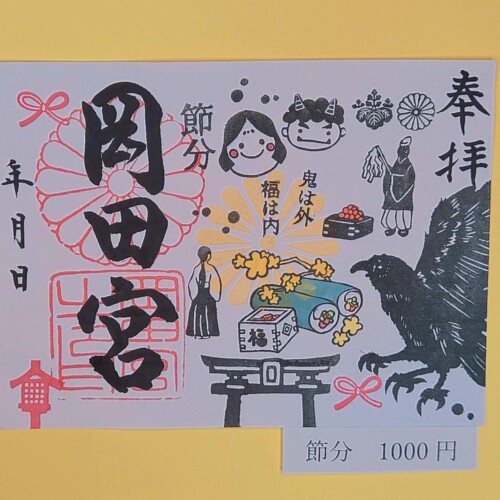 奉拝
節分
鬼は外
福は内
岡田宮
年月日
福
節分 1000円